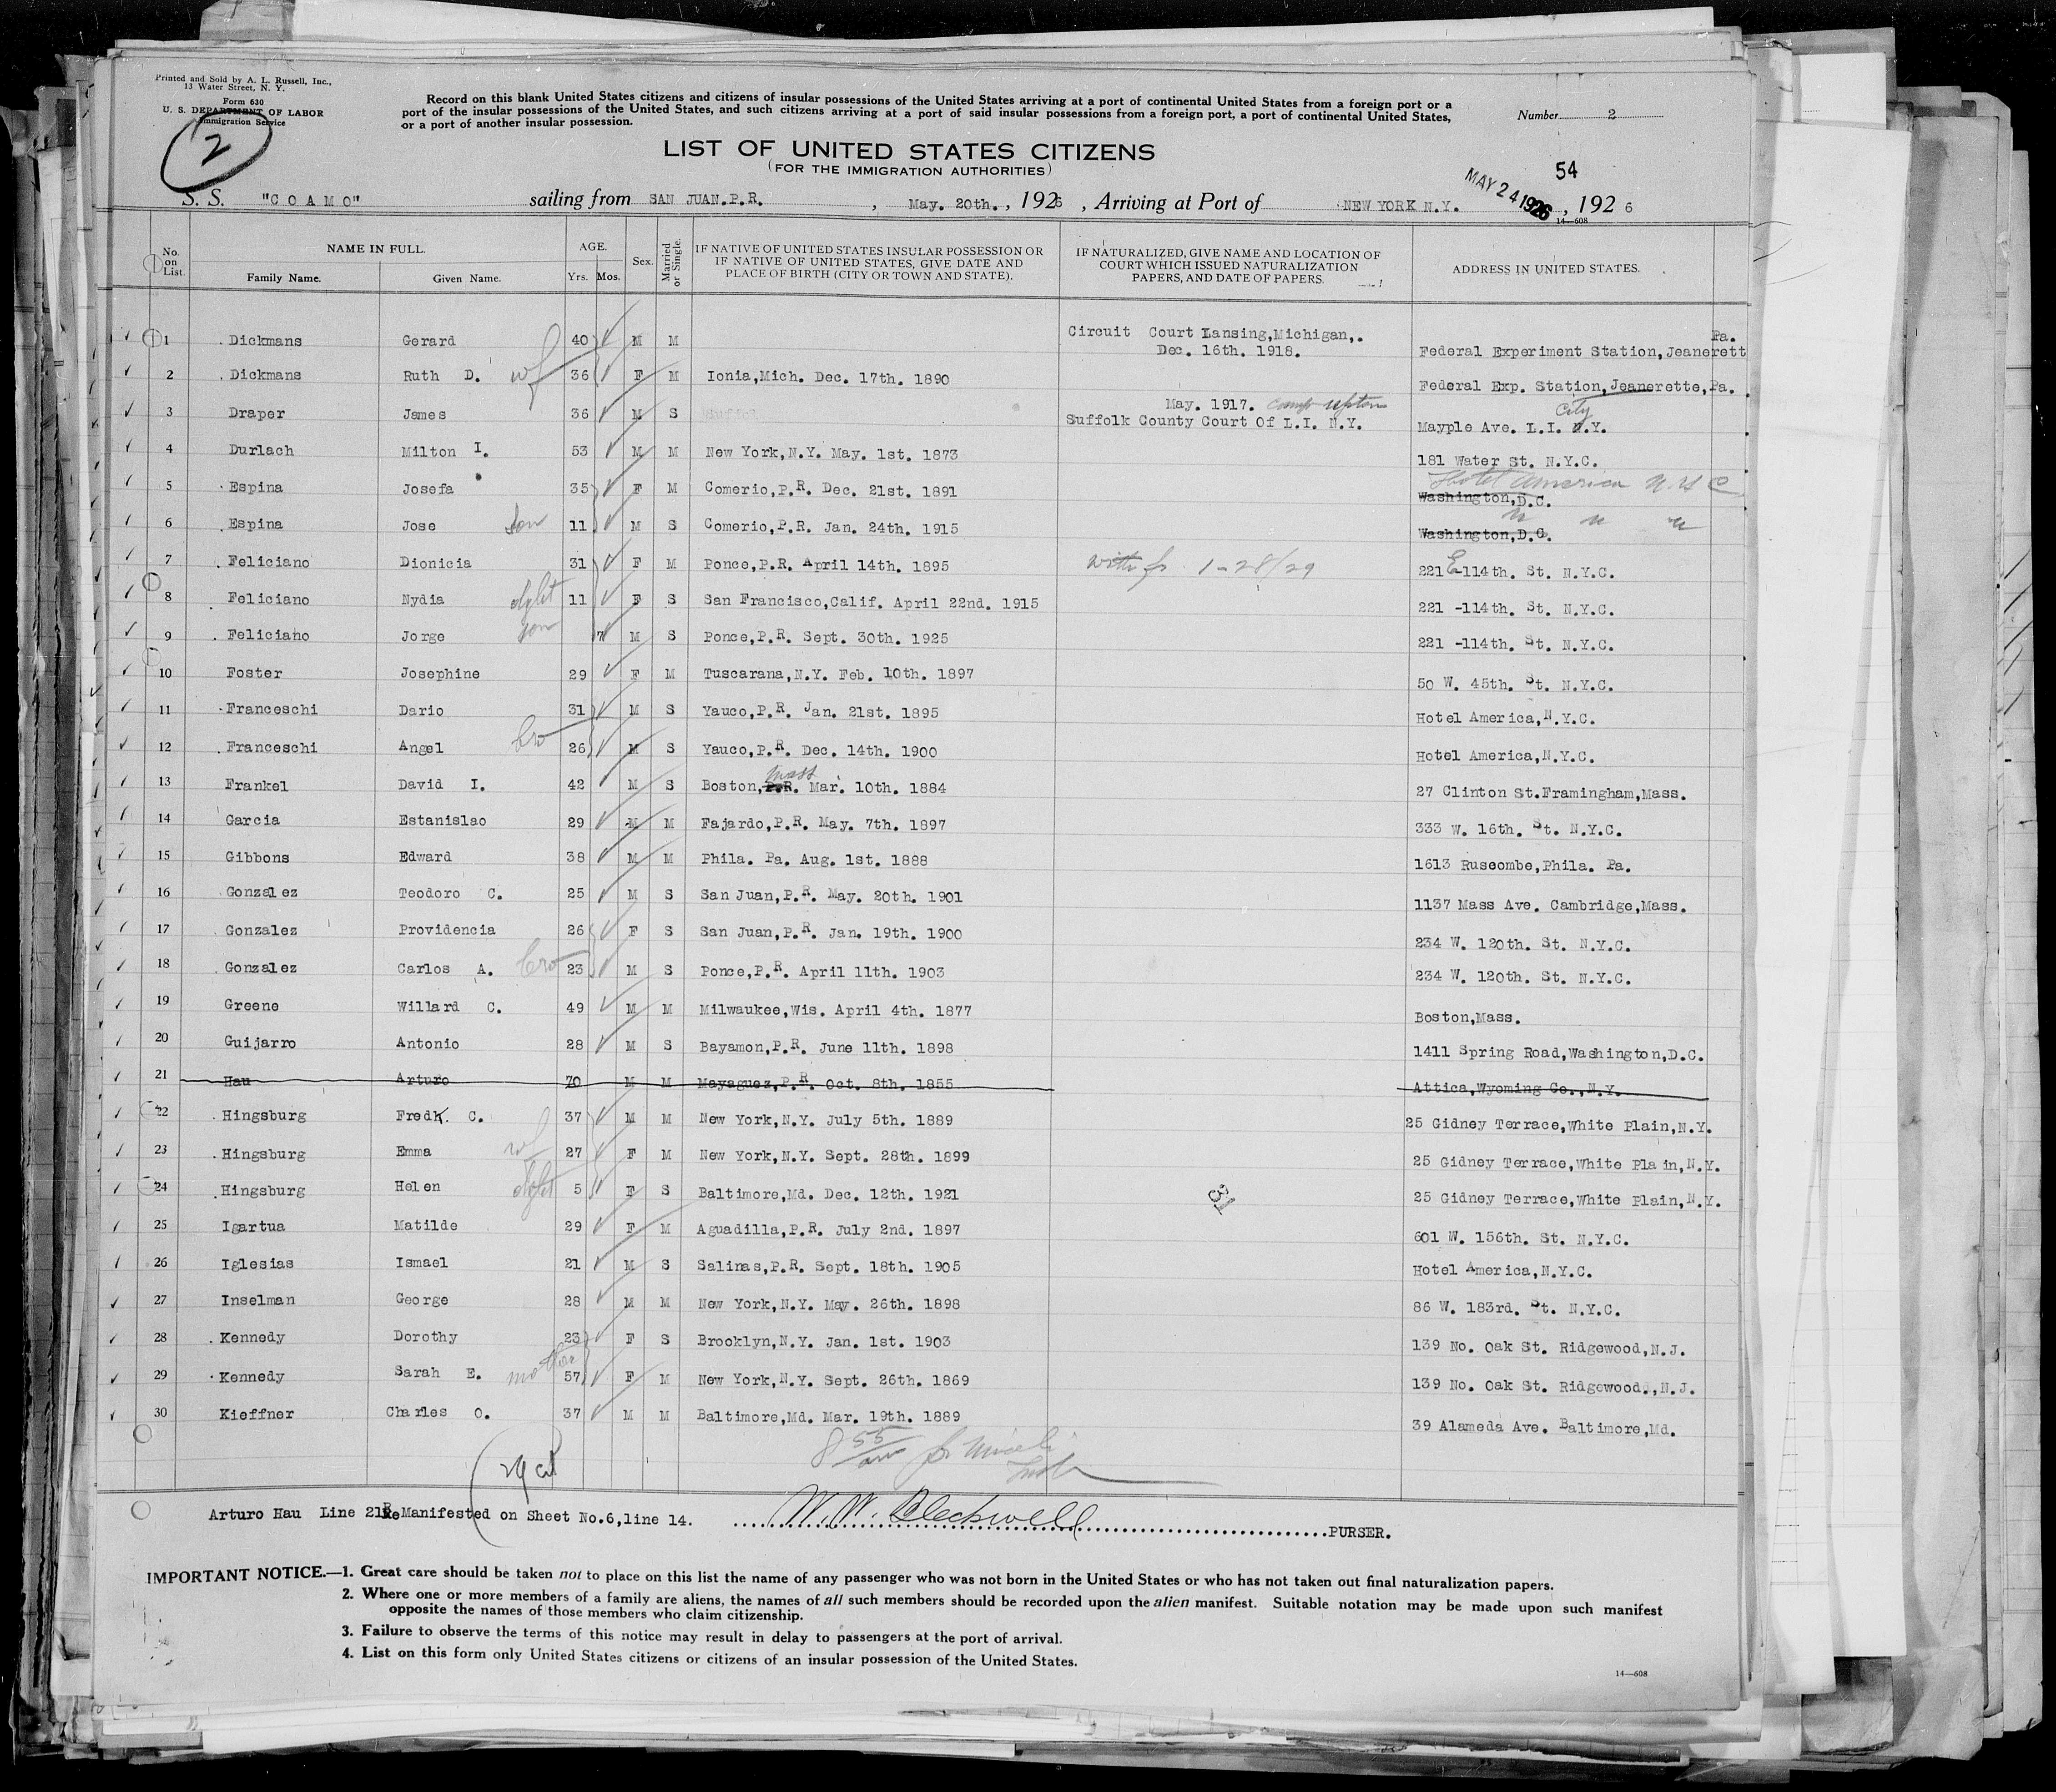 Printed and Sold by A. L. Russell, Inc.,
13 Water Street, N. Y.
Form 630
U. S. DEPARTMENT OF LABOR
Immigration Service
2
Record on this blank United States citizens and citizens of insular possessions of the United States arriving at a port of continental United States from a foreign port or a
port of the insular possessions of the United States, and such citizens arriving at a port of said insular possessions from a foreign port, a port of continental United States,
or a port of another insular possession.
Number 2
LIST OF UNITED STATES CITIZENS
(FOR THE IMMIGRATION AUTHORITIES)
54
S. S. "COAMO" sailing from SAN JUAN.P.R. , May. 20th. , 1926 , Arriving at Port of NEW YORK N.Y. MAY 24 1926 , 1926
14—608
No. on List. NAME IN FULL. Family Name. Given Name. AGE. Yrs. Mos. Sex. Married or Single. IF NATIVE OF UNITED STATES INSULAR POSSESSION OR IF NATIVE OF UNITED STATES, GIVE DATE AND PLACE OF BIRTH (CITY OR TOWN AND STATE). IF NATURALIZED, GIVE NAME AND LOCATION OF COURT WHICH ISSUED NATURALIZATION PAPERS, AND DATE OF PAPERS. ADDRESS IN UNITED STATES.
1 Dickmans Gerard 40 M M Circuit Court Lansing,Michigan,. Dec. 16th. 1918. Federal Experiment Station,Jeanerett Pa.
2 Dickmans Ruth D. wf 36 F M Ionia,Mich. Dec. 17th. 1890 Federal Exp. Station,Jeanerette,Pa.
3 Draper James 36 M S May. 1917. Camp Upton Suffolk County Court Of L.I. N.Y. Mayple Ave. L.I. City N.Y.
4 Durlach Milton I. 53 M M New York,N.Y. May. 1st. 1873 181 Water St. N.Y.C.
5 Espina Josefa 35 F M Comerio,P.R. Dec. 21st. 1891 Hotel America N.Y.C Washington,D.C.
6 Espina Jose son 11 M S Comerio,P.R. Jan. 24th. 1915 " " " Washington,D.C.
7 Feliciano Dionicia 31 F M Ponce,P.R. April 14th. 1895 1-28/29 221 E-114th. St. N.Y.C.
8 Feliciano Nydia dght 11 F S San Francisco,Calif. April 22nd. 1915 221 -114th. St. N.Y.C.
9 Feliciano Jorge son 7 M S Ponce,P.R. Sept. 30th. 1925 221 -114th. St. N.Y.C.
10 Foster Josephine 29 F M Tuscarana,N.Y. Feb. 10th. 1897 50 W. 45th. St. N.Y.C.
11 Franceschi Dario 31 M S Yauco,P.R. Jan. 21st. 1895 Hotel America,N.Y.C.
12 Franceschi Angel bro 26 M S Yauco,P.R. Dec. 14th. 1900 Hotel America,N.Y.C.
13 Frankel David I. 42 M S Boston,P.R. Mass Mar. 10th. 1884 27 Clinton St.Framingham,Mass.
14 Garcia Estanislao 29 M M Fajardo,P.R. May. 7th. 1897 333 W. 16th. St. N.Y.C.
15 Gibbons Edward 38 M M Phila. Pa. Aug. 1st. 1888 1613 Ruscombe,Phila. Pa.
16 Gonzalez Teodoro C. 25 M S San Juan,P.R. May. 20th. 1901 1137 Mass Ave. Cambridge,Mass.
17 Gonzalez Providencia 26 F S San Juan,P.R. Jan. 19th. 1900 234 W. 120th. St. N.Y.C.
18 Gonzalez Carlos A. bro 23 M S Ponce,P.R. April 11th. 1903 234 W. 120th. St. N.Y.C.
19 Greene Willard C. 49 M M Milwaukee,Wis. April 4th. 1877 Boston,Mass.
20 Guijarro Antonio 28 M S Bayamon,P.R. June 11th. 1898 1411 Spring Road,Washington,D.C.
21 Hau Arturo 70 M M Mayaguez,P.R. Oct. 8th. 1855 Attica,Wyoming Co.,N.Y.
22 Hingsburg Fredk. C. 37 M M New York,N.Y. July 5th. 1889 25 Gidney Terrace,White Plain,N.Y.
23 Hingsburg Emma wf 27 F M New York,N.Y. Sept. 28th. 1899 25 Gidney Terrace,White Plain,N.Y.
24 Hingsburg Helen dght 5 F S Baltimore,Md. Dec. 12th. 1921 31 25 Gidney Terrace,White Plain,N.Y.
25 Igartua Matilde 29 F M Aguadilla,P.R. July 2nd. 1897 601 W. 156th. St. N.Y.C.
26 Iglesias Ismael 21 M S Salinas,P.R. Sept. 18th. 1905 Hotel America,N.Y.C.
27 Inselman George 28 M M New York,N.Y. May. 26th. 1898 86 W. 183rd. St. N.Y.C.
28 Kennedy Dorothy 23 F S Brooklyn,N.Y. Jan. 1st. 1903 139 No. Oak St. Ridgewood,N.J.
29 Kennedy Sarah E. mother 57 F M New York,N.Y. Sept. 26th. 1869 139 No. Oak St. Ridgewood.,N.J.
30 Kieffner Charles O. 37 M M Baltimore,Md. Mar. 19th. 1889 39 Alameda Ave. Baltimore,Md.
29 cit
Arturo Hau Line 21 Re Manifested on Sheet No.6,line 14. W. W. Blackwell PURSER.
IMPORTANT NOTICE.—1. Great care should be taken not to place on this list the name of any passenger who was not born in the United States or who has not taken out final naturalization papers.
2. Where one or more members of a family are aliens, the names of all such members should be recorded upon the alien manifest. Suitable notation may be made upon such manifest
opposite the names of those members who claim citizenship.
3. Failure to observe the terms of this notice may result in delay to passengers at the port of arrival.
4. List on this form only United States citizens or citizens of an insular possession of the United States.
14—608